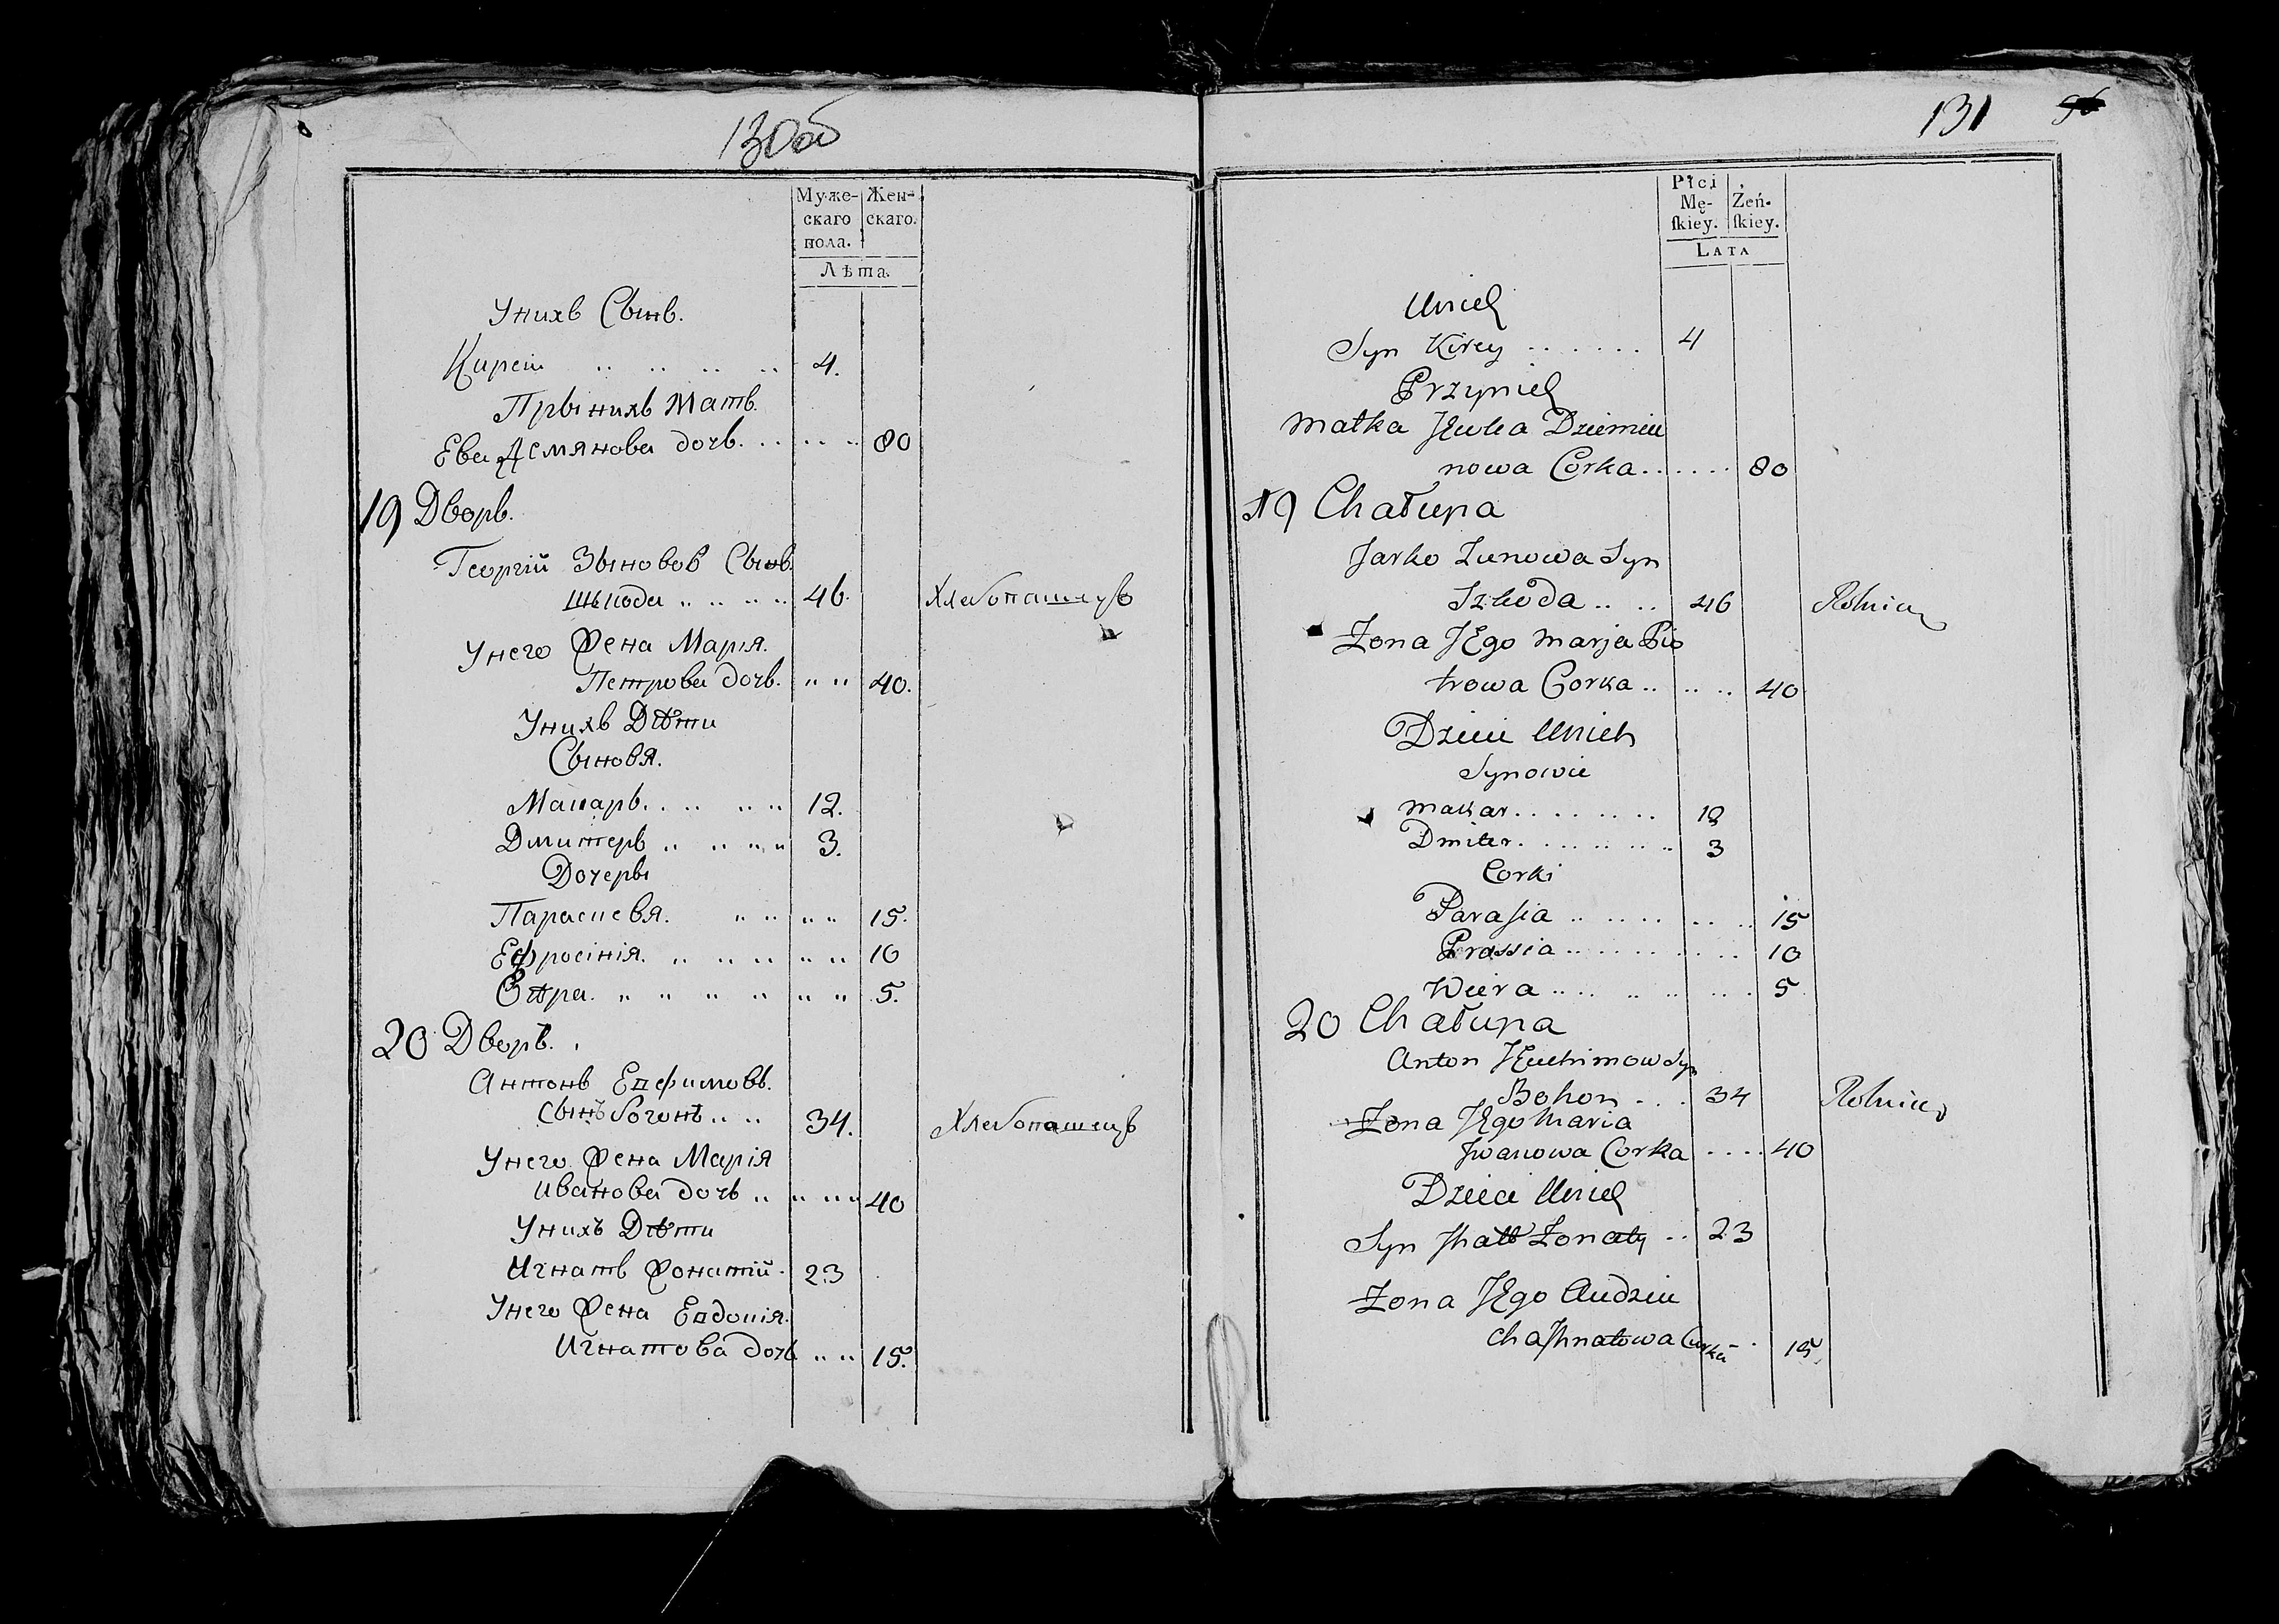 130об
Муже-
скаго
пола.
Жен-
скаго.
Лѣта.
Унихъ Сынъ.
Кирей 4.
Прынихъ Мать.
Ева Демянова дочь. 80
19 Дворъ.
Георгій Зыновов Сынъ
Шкода 46. Хлебопашецъ
Унего Жена Марія.
Петрова дочь. 40.
Унихъ Дѣти
Сыновя.
Макаръ. 12.
Дмитеръ 3.
Дочеры
Параскевя. 15.
Ефросінія. 10
Вѣра. 5.
20 Дворъ.
Антонъ Евфимовъ.
сынъ богонъ 34. Хлебопашецъ
Унего Жена Марія
Иванова дочь 40
Унихъ Дѣти
Игнатъ Жонатій. 23
Унего Жена Евдокія.
Игнатова дочь 15.
131
Płci
Mę-
ſkiey.
Żeń-
ſkiey.
LATA
Unich
Syn Kirey 4
Przynich
Matka Jewka Dziemia
nowa Corka 80
19 Chałupa
Jarko Zunowa Syn
Szkoda 46 Rolnik
Żona JEgo Marja Pio
trowa Corka 40
Dzieci Unich
Synowie
Makar 12
Dmiter 3
Corki
Parasia 15
Prossia 10
Wiera 5
20 Chałupa
Anton JEuchimow Syn
Bohon 34 Rolnik
Żona JEgo Maria
Jwanowa Corka 40
Dzieci Unich
Syn Jhatt Żonaty 23
Żona JEgo Audziu
cha Jhnatowa Curka 15